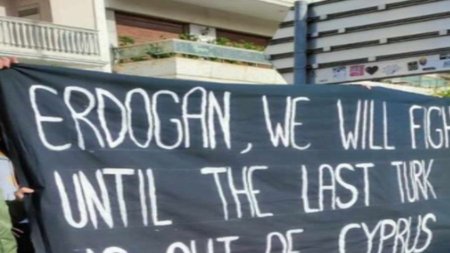 ERDOGAN, WE WILL FIGH
UNTIL THE LAST TURK
IS OUT OF CYPRUS